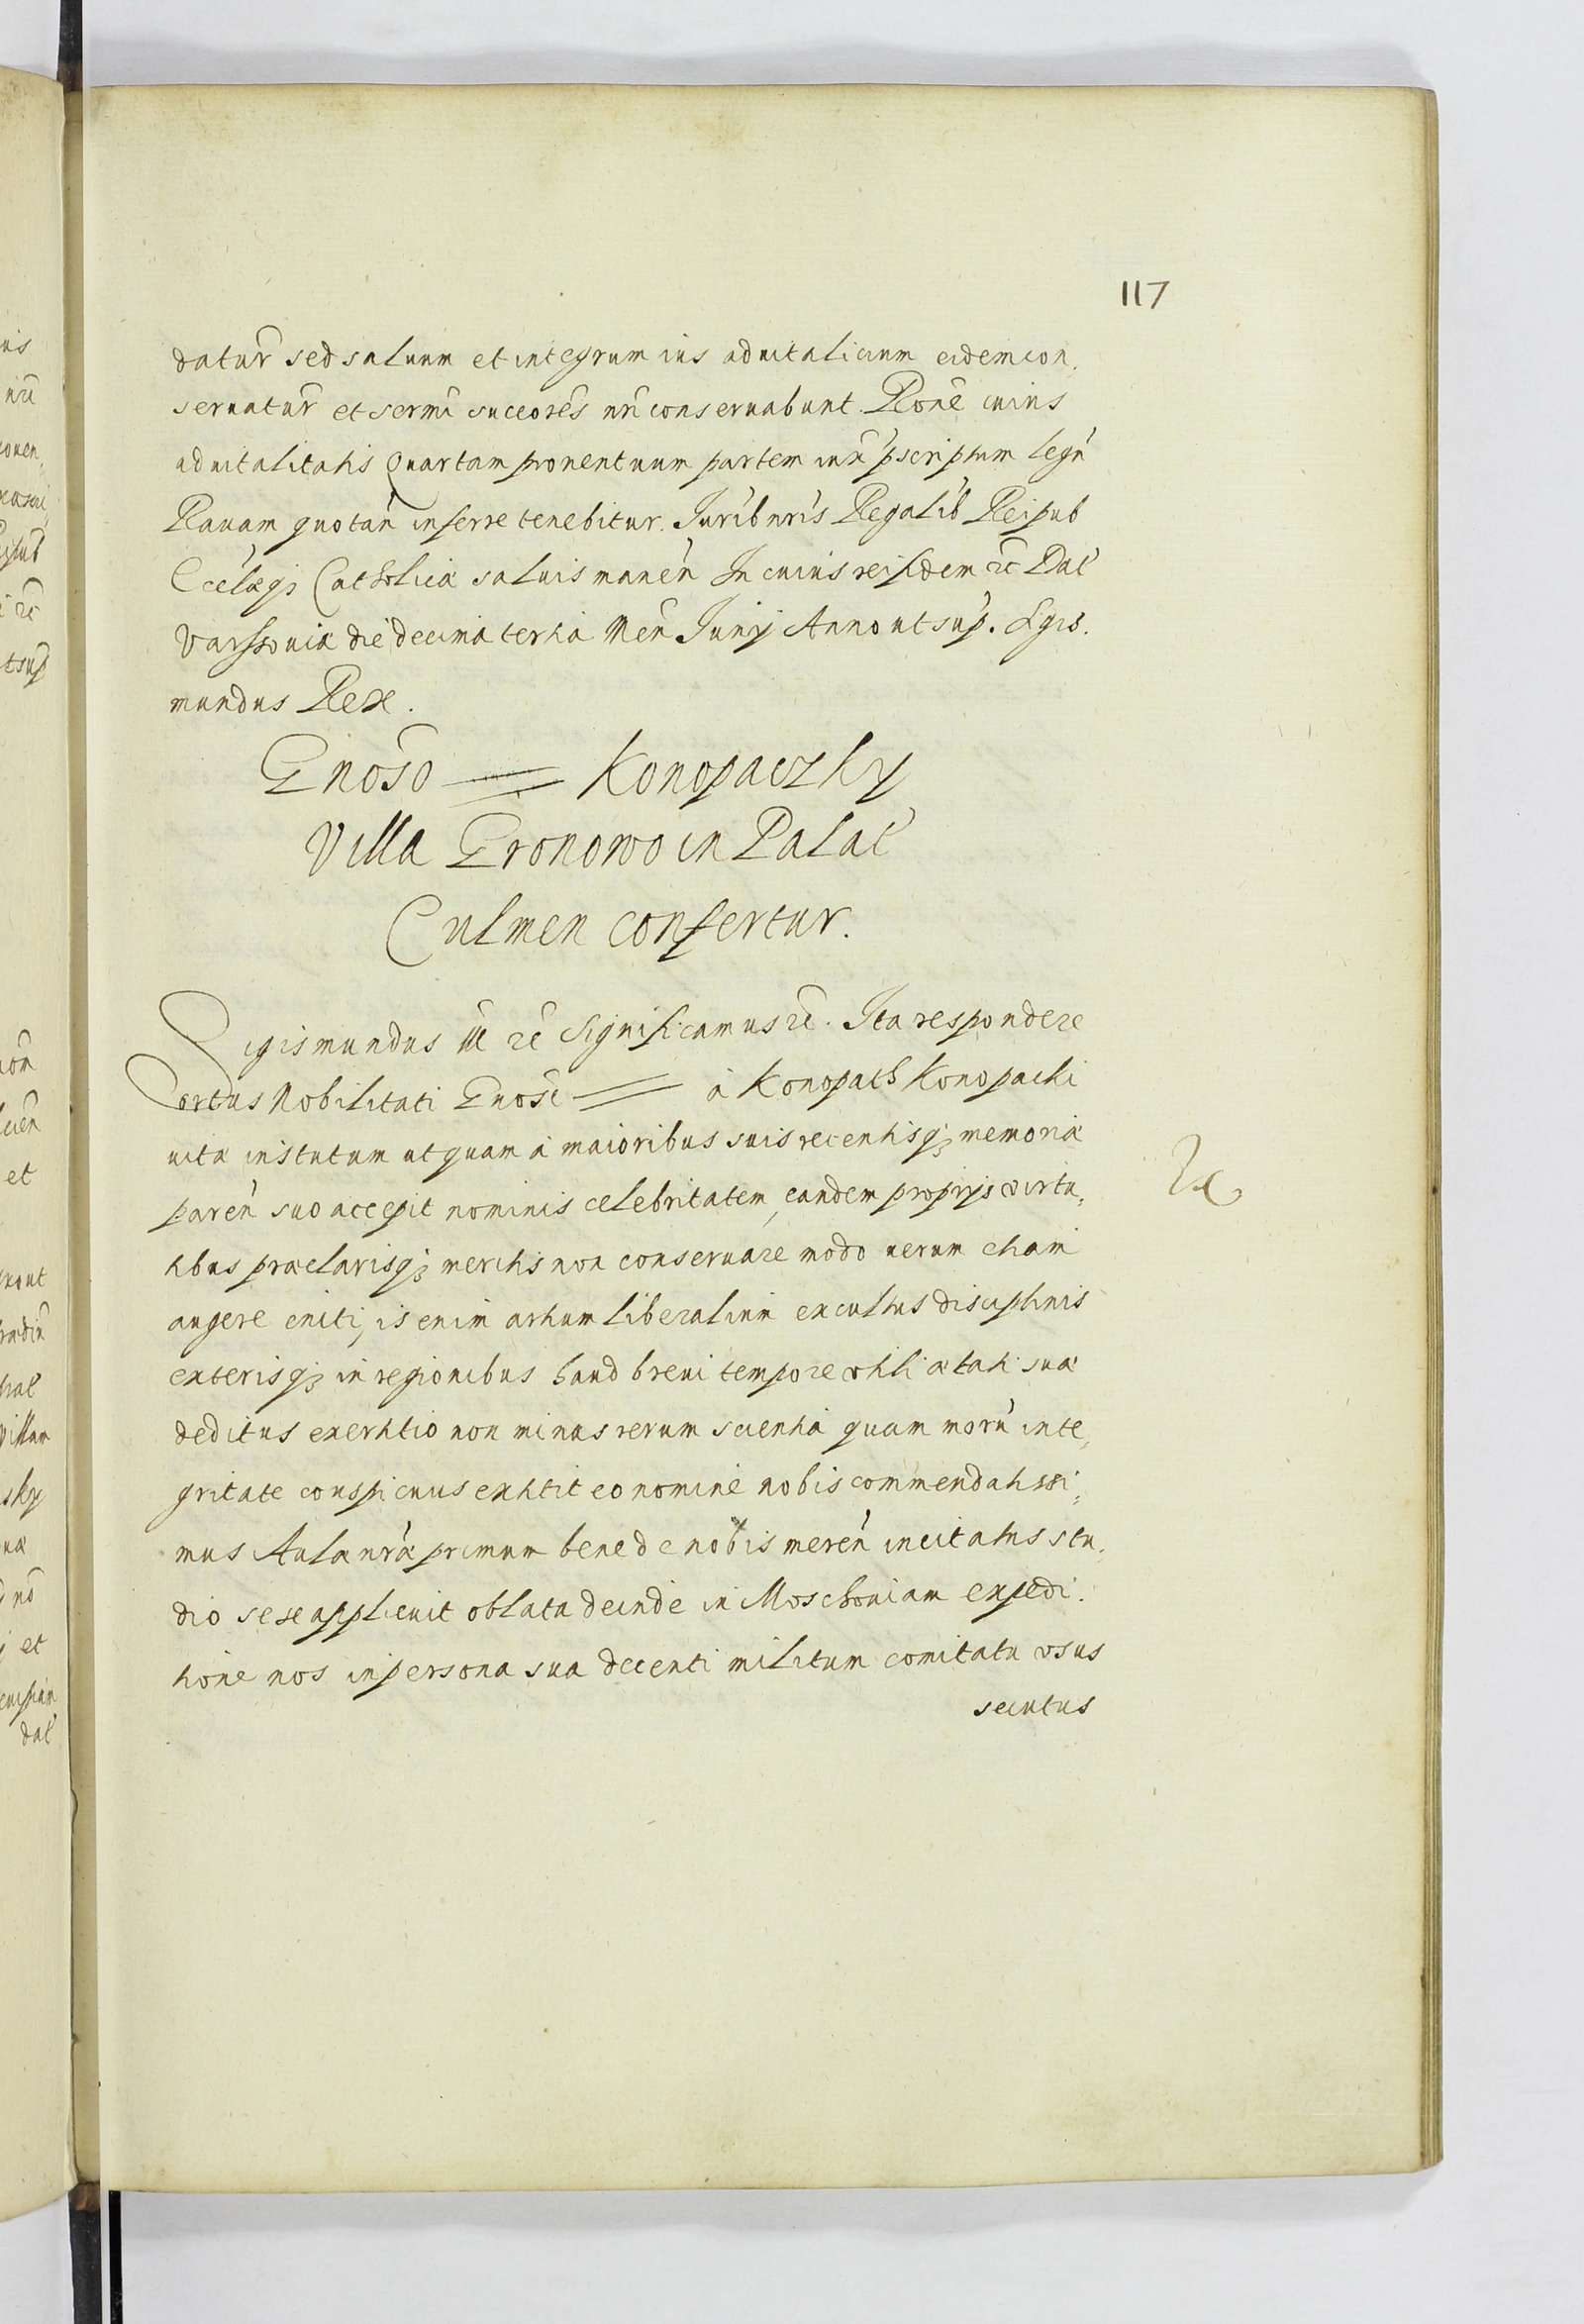 117
datur̃ sed saluum et integrum ius aduitalicium eidem con,
seruatur̃ et sermi succores nri conseruabunt. Rone cuius
aduitalitatis Quartam prouentuum partem iux pscriptum legũ
Rauam quotan inferre tenebitur. Jurib nris Regalib Reipub
Ecclæq; Catholicæ saluis manen In cuius rei fidem &c Dat
Varssouiæ die decima tertia Men Junij Anno ut sup. Sgis.
mundus Rex.
Gnoso == Konopaczky
Villa Gronowo in Palat
Culmen confertur.
Sigismundus III &c Significamus &c. Ita respondere
ortus Nobilitati Gnosi == à Konopath Konopacki
uitæ institutum ut quam à maioribus suis recentisq; memoriæ
paren suo accepit nominis celebritatem, eandem proprijs virtu,
tibus præclarisq; meritis non conseruare modo uerum etiam
augere eniti, is enim artium liberalium excultus disciplinis
exterisq; in regionibus haud breui tempore vtili ætati suæ
deditus exertitio non minus rerum scientia quam morũ inte,
gritate conspicuus extitit eo nomine nobis commendatissi,
mus Aulæ nræ primum bene de nobis meren incitatus stu,
dio sese applicuit oblata deinde in Moschouiam expedi.
tione nos in persona sua decenti militum comitatu vsus
secutus